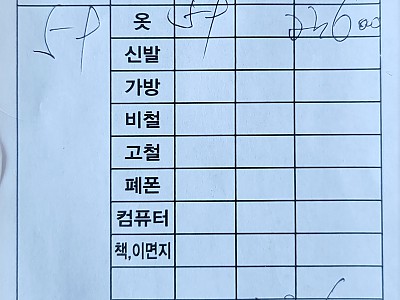 옷
신발
가방
비철
고철
폐폰
컴퓨터
책,이면지